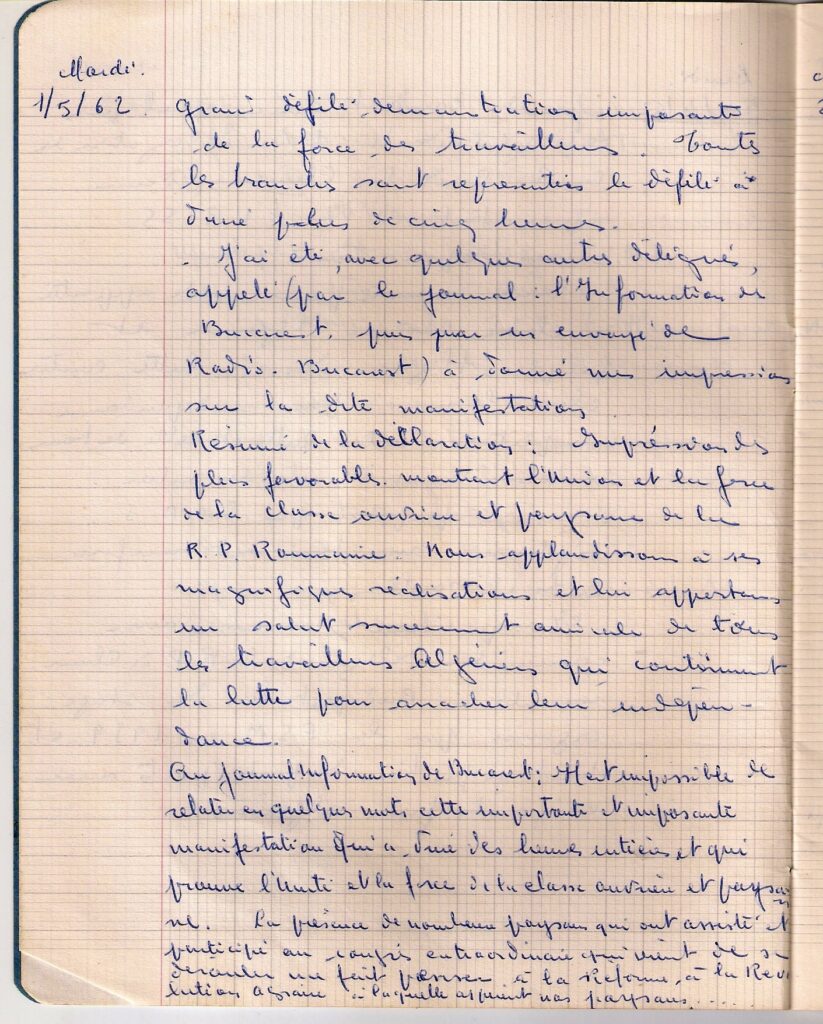 Mardi.
1/5/62. Grand défilé, démonstration imposante
de la force des travailleurs. Toutes
les branches sont representées le défilé a
duré plus de cinq heures.
. J'ai été, avec quelques autres délégués,
appelé (par le journal : l'Information de
Bucarest, puis par un envoyé de
Radio. Bucarest) à donné mes impressions
sur la dite manifestation
Résumé de la déclaration : Impréssion des
plus favorables. montrant l'Union et la force
de la classe ouvrière et paysane de la
R. P. Roumanie. Nous applaudissons à ses
magnifiques réalisations et lui apportons
un salut sincerement amicale de tous
les travailleurs Algériens qui continuent
la lutte pour arracher leur indépen-
dance.
Au journal Information de Bucarest : Il est impossible de
relater en quelques mots cette importante et imposante
manifestation qui a duré des heures entières et qui
prouve l'Unité et la force de la classe ouvrière et paysa
ne. La présence de nombreux paysans qui ont assisté et
participé au congrés extraordinaire qui vient de se
dérouler me fait penser à la Réforme, à la Révo
lution agraire à laquelle aspirent nos paysans.....